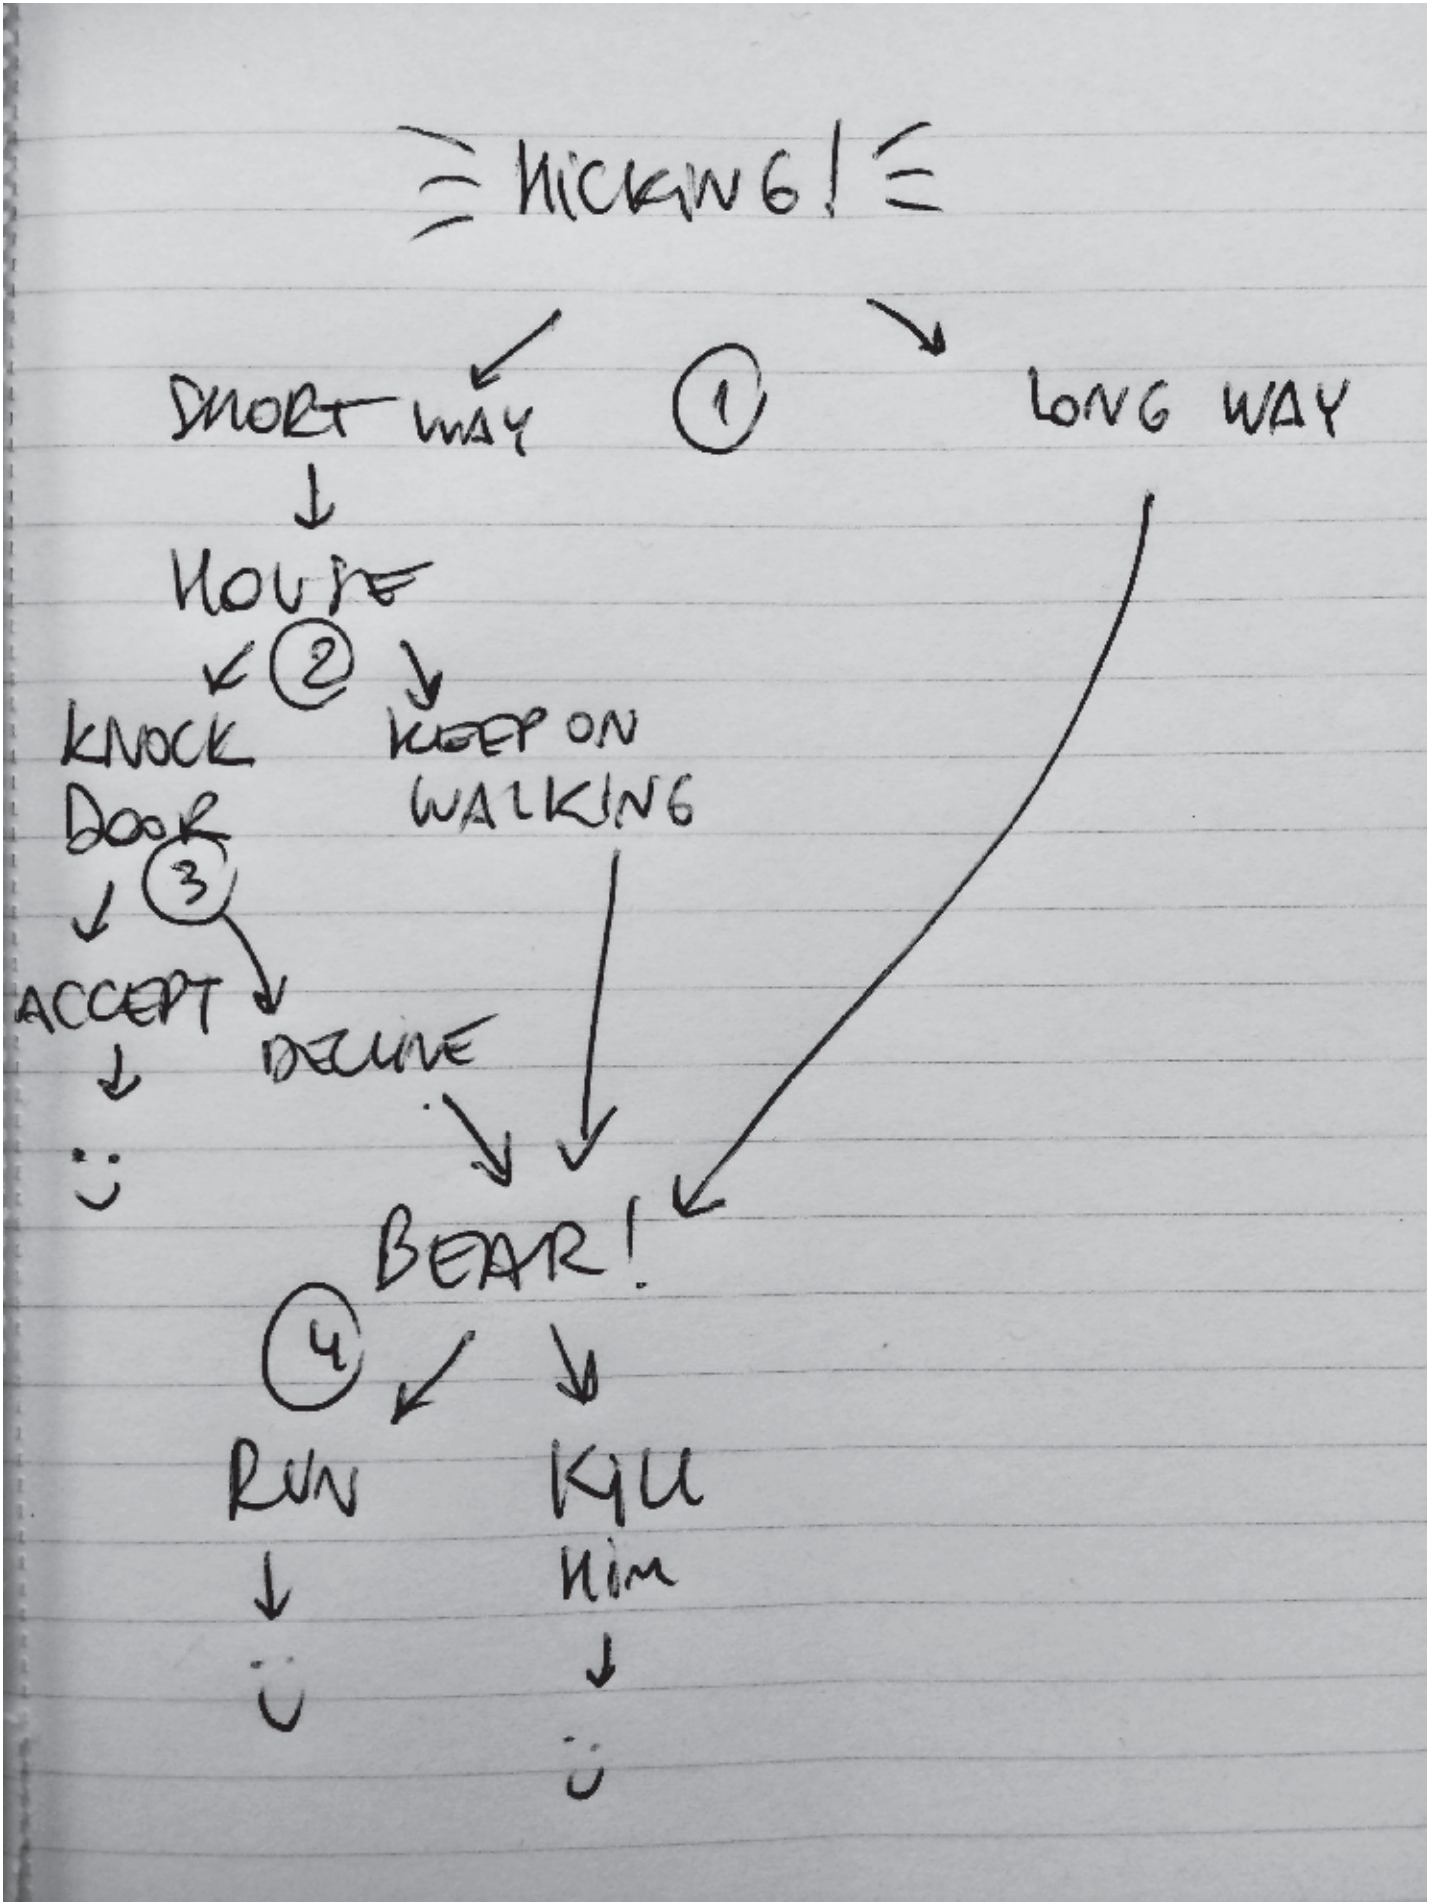 HiCKiNG!
SHORT WAY
1
LONG WAY
HOUSE
2
KNOCK
DOOR
KEEP ON
WALKING
3
ACCEPT
DECLINE
:)
BEAR!
4
RUN
KiLL
HiM
:)
:)